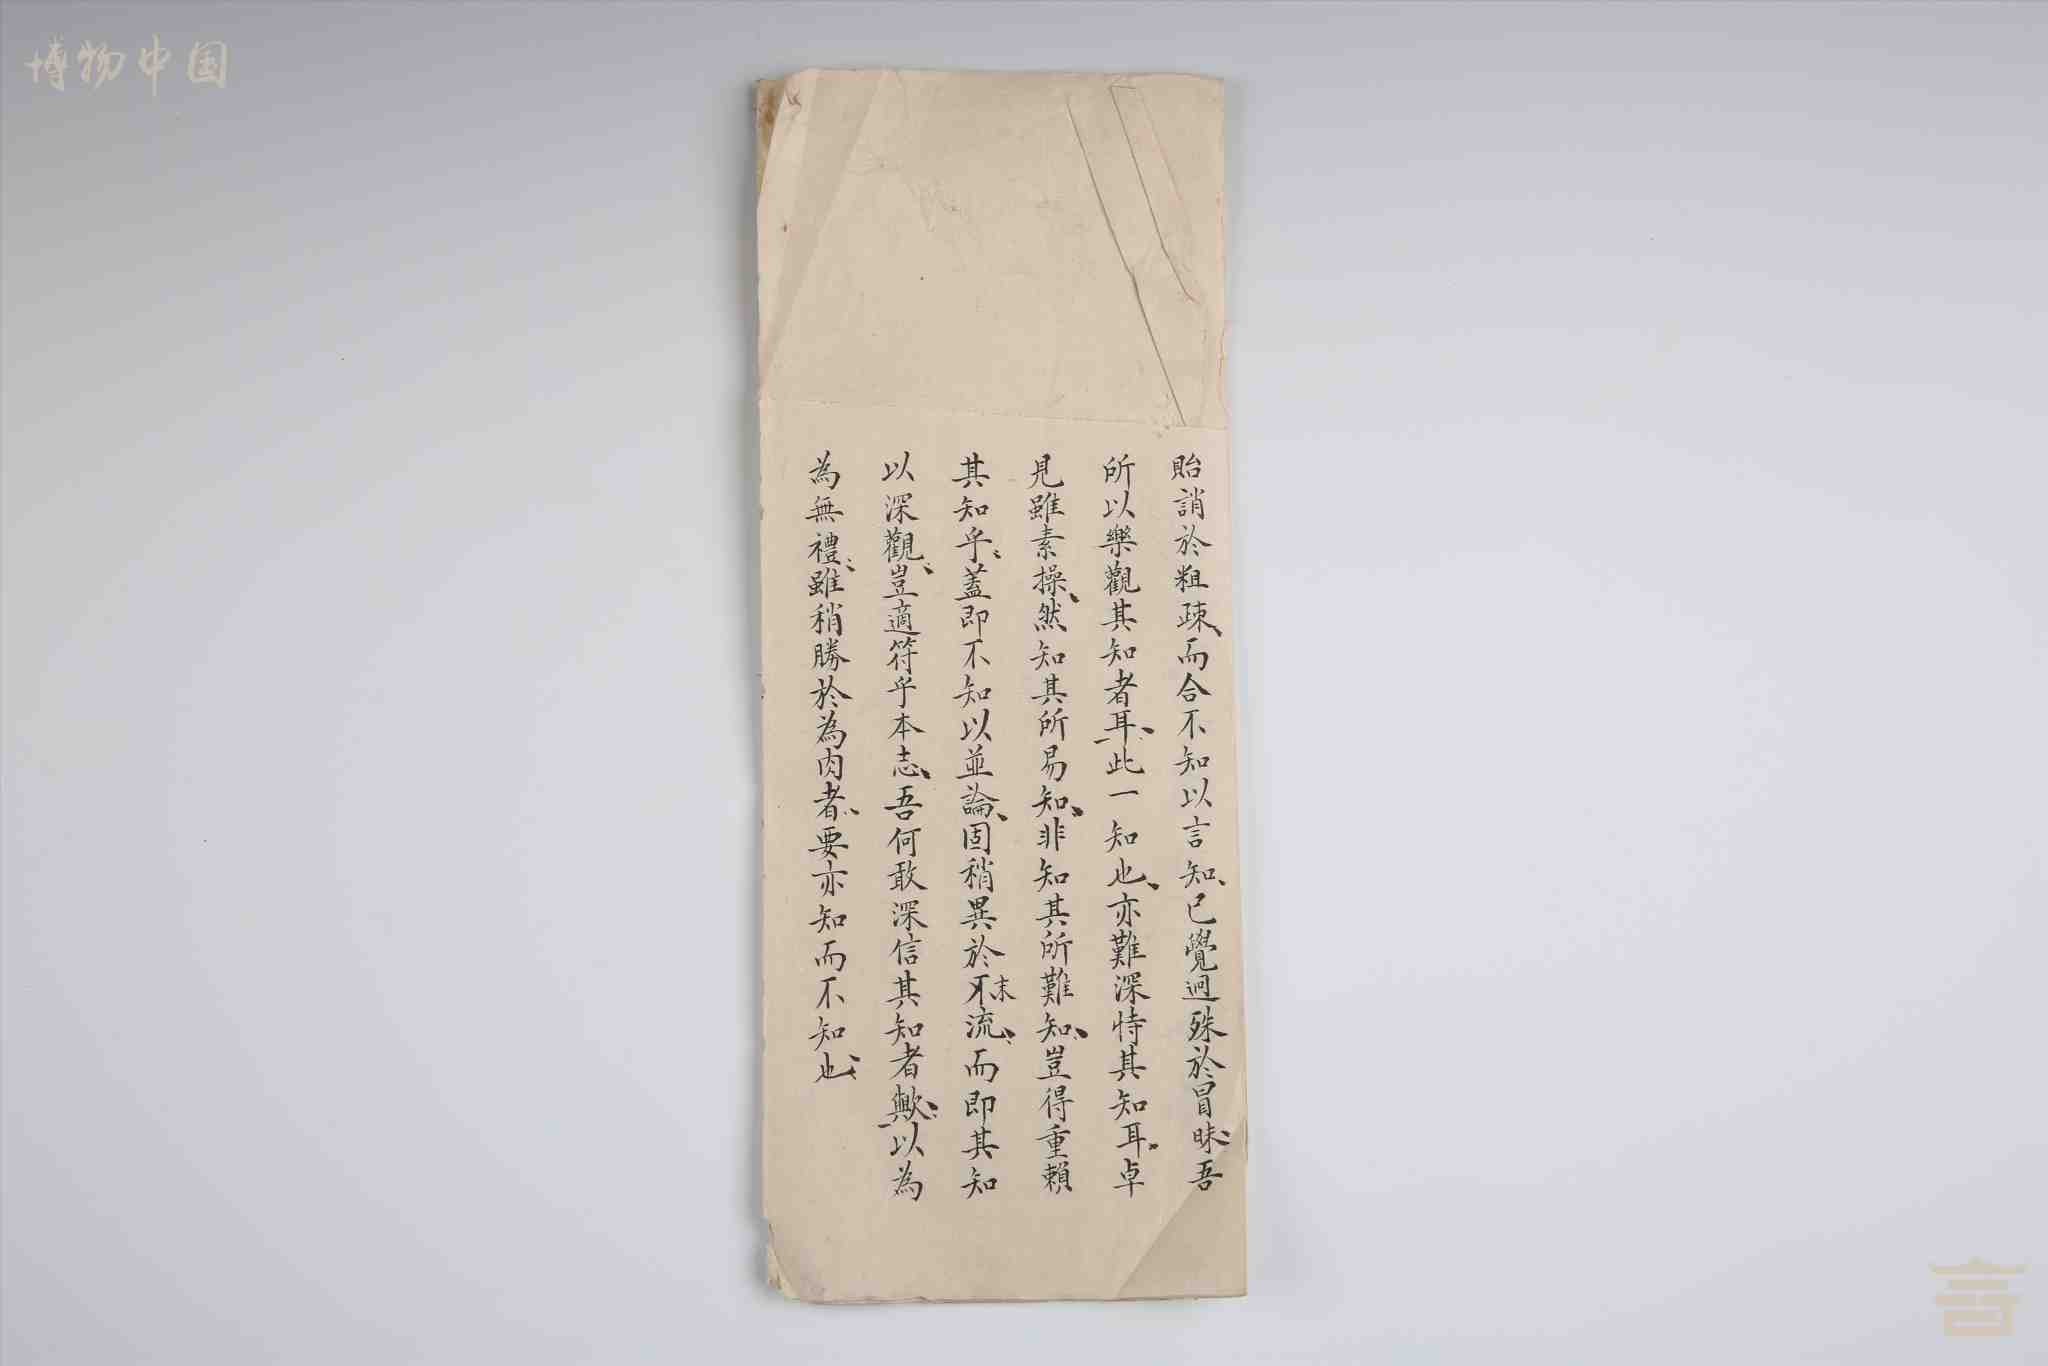 博物中国
貽誚於粗疎而合不知以言知已覺迥殊於冒昧吾
所以樂觀其知者耳此一知也亦難深恃其知耳卓
見雖素操然知其所易知非知其所難知豈得重賴
其知乎蓋即不知以並論固稍異於不末流而即其知
以深觀豈適符乎本志吾何敢深信其知者歟以為
為無禮雖稍勝於為肉者要亦知而不知也